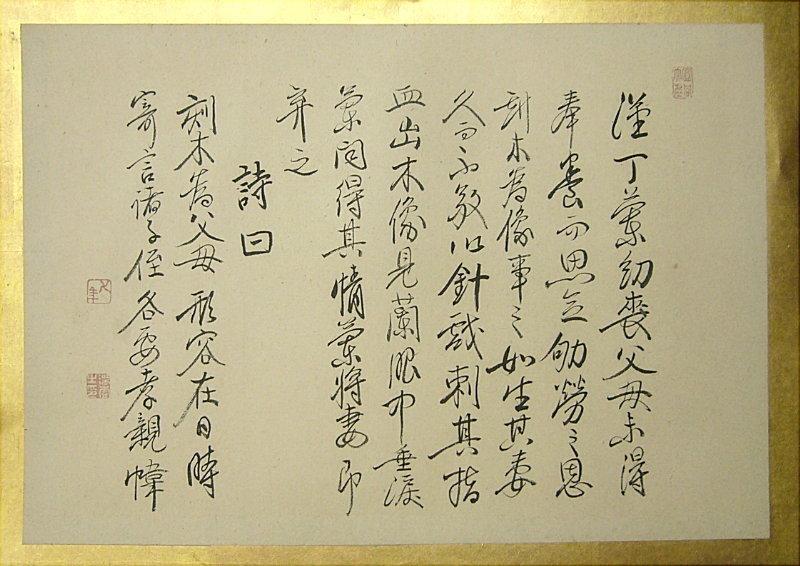 漢丁蘭幼喪父母未得
奉養而思念劬勞之恩
刻木為像事之如生其妻
久而不敬以針戲刺其指
血出木像見蘭眼中垂淚
蘭問得其情蘭將妻即
弃之
詩曰
刻木為父母形容在日時
寄言諸子侄各要孝親幃